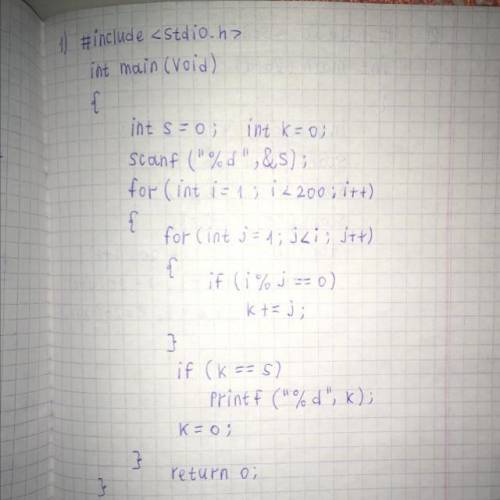 1) #include <stdio.h>
int main (void)
{
int s = 0; int k = 0;
scanf ("%d", &s);
for (int i = 1; i < 200; i++)
{
for (int j = 1; j < i; j++)
{
if (i % j == 0)
k += j;
}
if (k == s)
printf ("%d", k);
k = 0;
}
return 0;
}